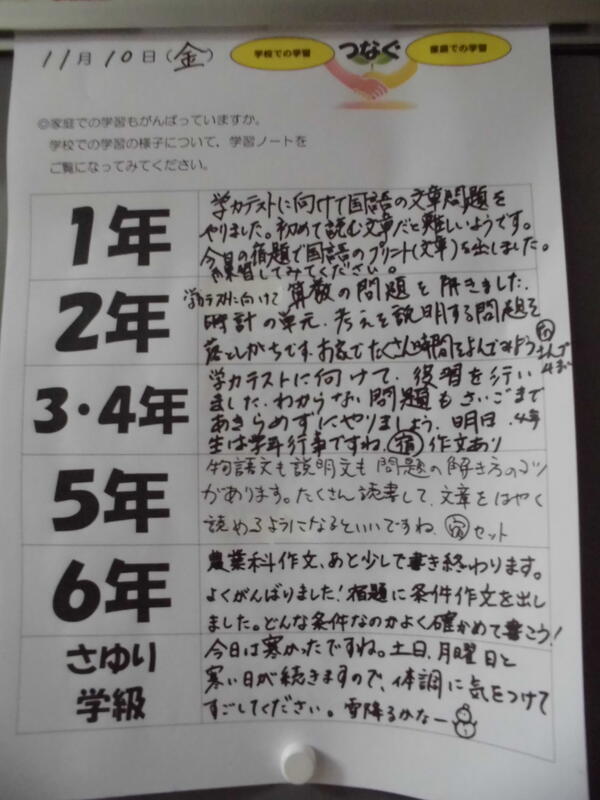 11月10日(金)
学校での学習 つなぐ 家庭での学習
◎家庭での学習もがんばっていますか。
学校での学習の様子について、学習ノートを
ご覧になってみてください。
1年
学力テストに向けて国語の文章問題を
やりました。初めて読む文章だと難しいようです。
今日の宿題で国語のプリント(文章)を出しました。
練習してみてください。
2年
学力テストに向けて 算数の問題を解きました。
時計の単元、考えを説明する問題を
落としがちです。お家でたくさん時間をよんでみよう
3・4年
学力テストに向けて、復習を行い
ました。わからない問題もさいごまで
あきらめずにやりましょう。明日、4年
生は学年行事ですね。宿 作文あり
5年
物語文も説明文も問題の解き方のコツ
があります。たくさん読書して、文章をはやく
読めるようになるといいですね。宿 セット
6年
農業科作文、あと少しで書き終わります。
よくがんばりました!宿題に条件作文を出し
ました。どんな条件なのかよく確かめて書こう!
さゆり
学級
今日は寒かったですね。土日、月曜日と
寒い日が続きますので、体調に気をつけて
すごしてください。雪降るかなー